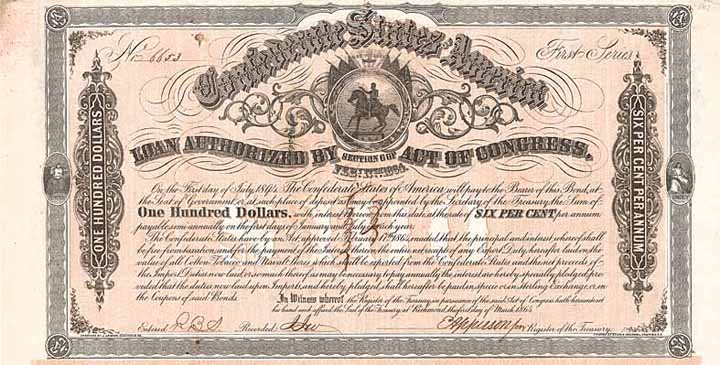 No. 6653
First Series
Confederate States America
LOAN AUTHORIZED BY SECTION 6 OF ACT OF CONGRESS,
FEB. 17TH 1864.
ONE HUNDRED DOLLARS
SIX PER CENT PER ANNUM
On the First day of July 1894, The Confederate States of America, will pay to the Bearer of this Bond, at
the Seat of Government, or, at such place of deposit as may be appointed by the Secretary of the Treasury, the Sum of
One Hundred Dollars, with interest thereon from this date, at the rate of SIX PER CENT, per annum
payable semi annually on the first days of January and July in each year.
The Confederate States have by an Act, approved February 17th 1864, enacted, that the principal and interest whereof shall
be free from taxation, and for the payment of the Interest thereon, the entire net receipts of any Export Duty, hereafter laid on the
value of all Cotton, Tobacco and Naval Stores which shall be exported from the Confederate States and the net proceeds of
the Import Duties now laid, or so much thereof as may be necessary to pay annually the interest are hereby specially pledged: pro
vided that the duties now laid upon Imports, and hereby pledged, shall hereafter be paid in specie or in Sterling Exchange, or in
the Coupons of said Bonds.
In Witness whereof the Register of the Treasury, in pursuance of the said Act of Congress hath hereunto set
his hand and affixed the Seal of the Treasury, at Richmond, the first day of March 1864.
Entered
Recorded
Register of the Treasury.